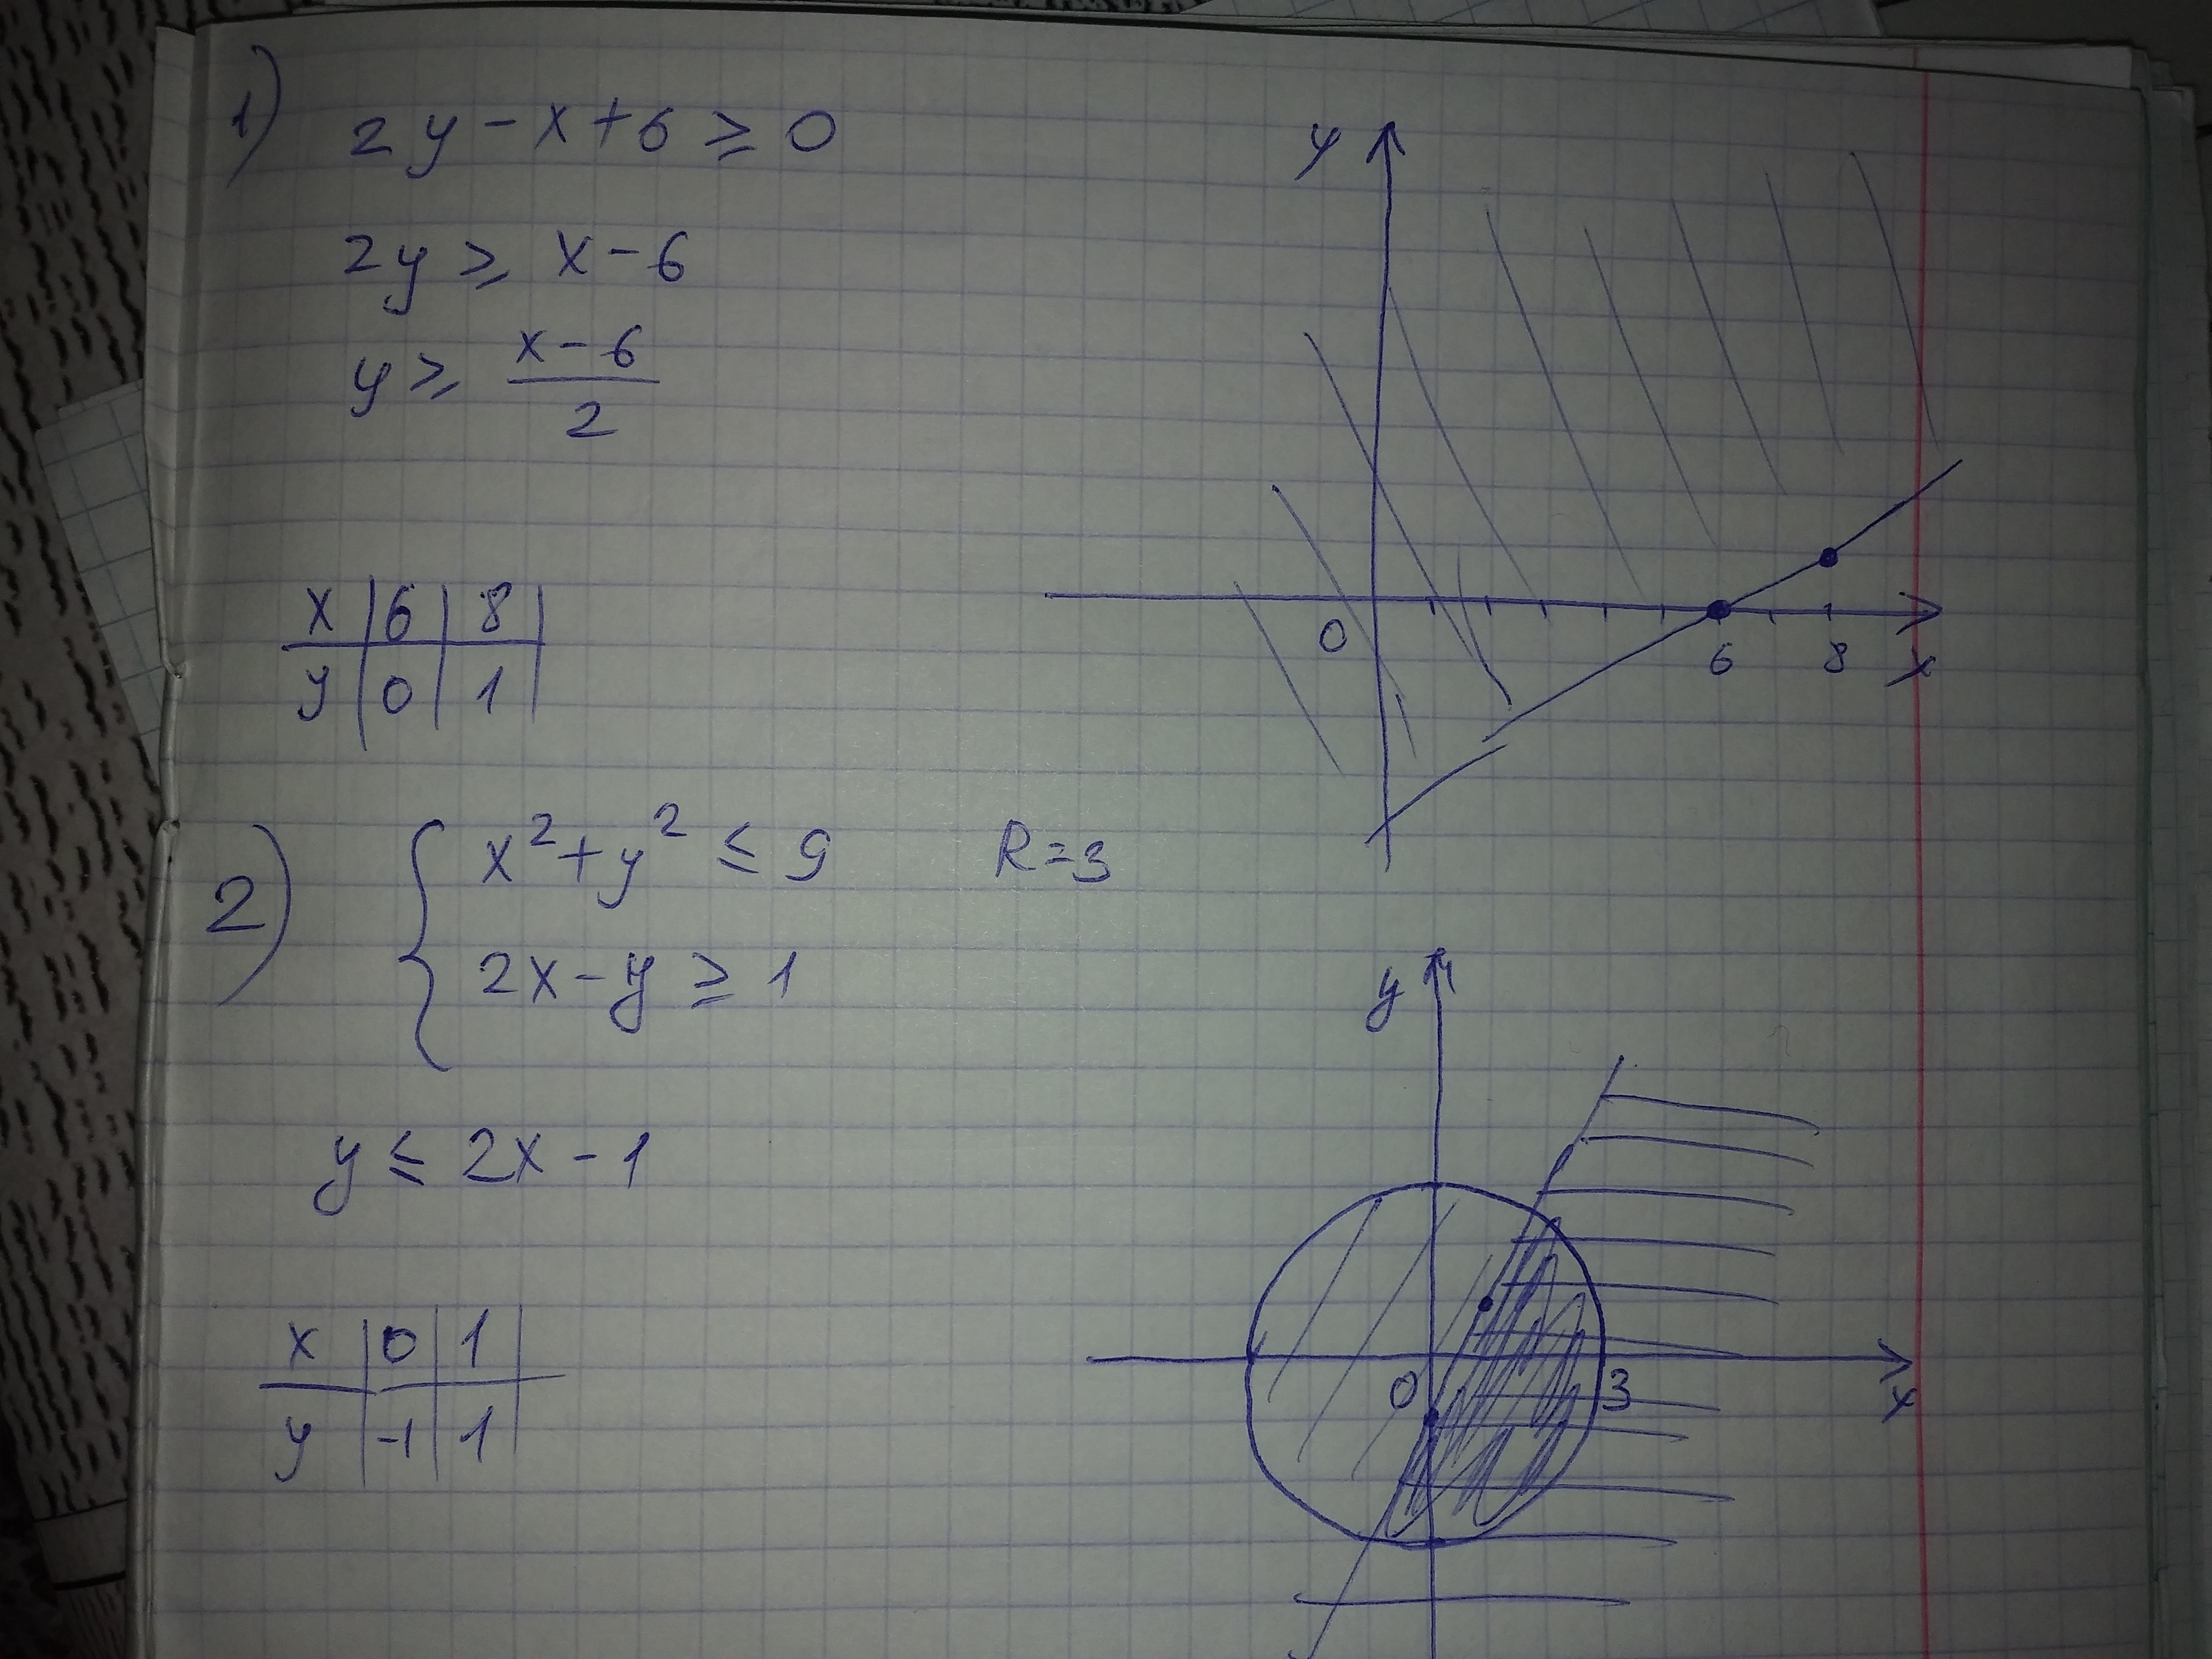 1) 2y - x + 6 ≥ 0
2y ≥ x - 6
y ≥ (x - 6)/2
x | 6 | 8
y | 0 | 1
y
0 6 8 x
2) { x² + y² ≤ 9 R = 3
2x - y ≥ 1
y ≤ 2x - 1
x | 0 | 1
y | -1 | 1
y
0 3 x